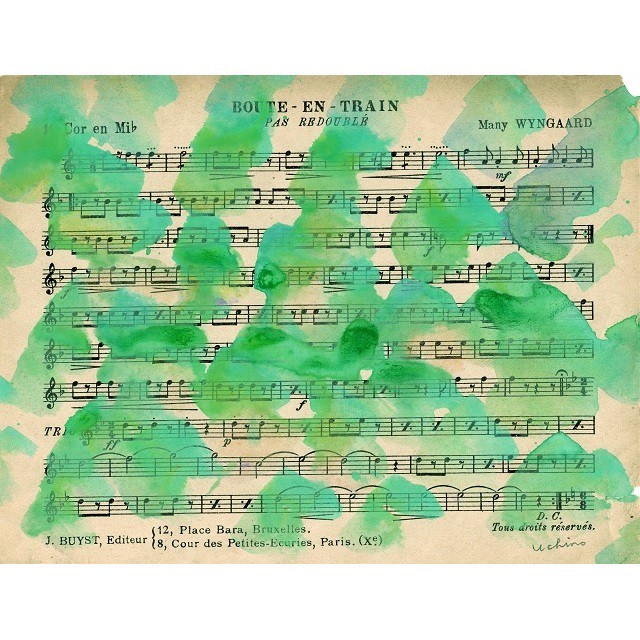 BOUTE-EN-TRAIN
PAS REDOUBLÉ
Cor en Mi♭
Many WYNGAARD
mf
f
f
TRIO
ff
p
D. C.
J. BUYST, Editeur
12, Place Bara, Bruxelles.
8, Cour des Petites-Ecuries, Paris. (Xe)
Tous droits réservés.
uchino